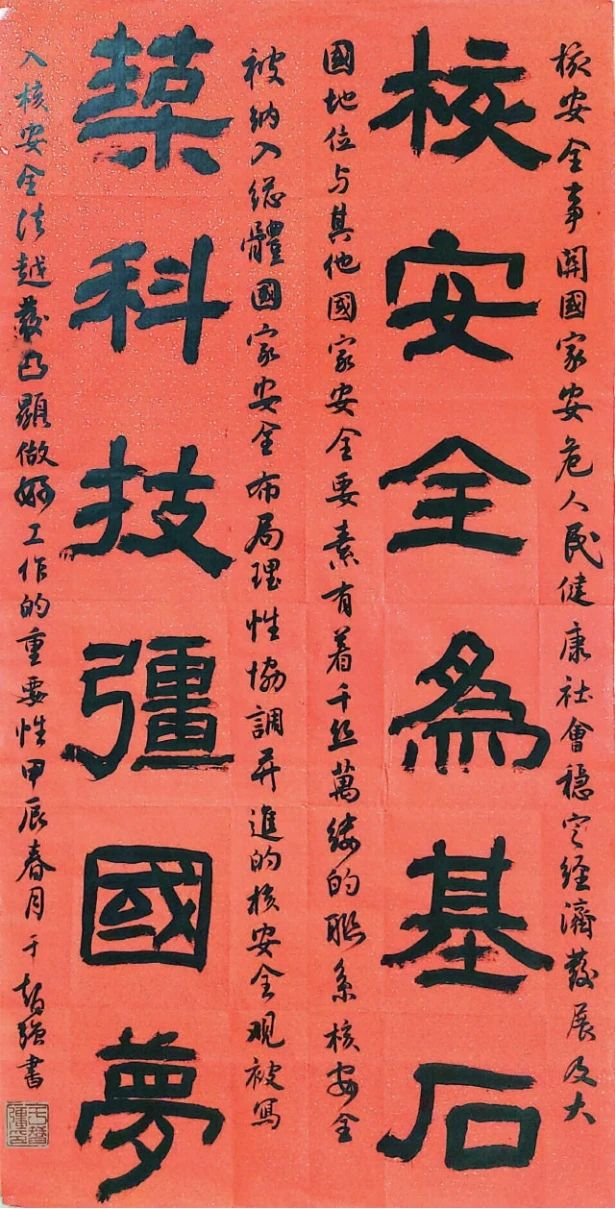 核安全事關國家安危人民健康社會穩定經濟發展及大
核安全為基石
國地位与其他國家安全要素有着千丝萬缕的聯系核安全
被納入總體國家安全布局理性協調并進的核安全观被寫
築科技彊國夢
入核安全法越發凸顯做好工作的重要性甲辰春月于强書